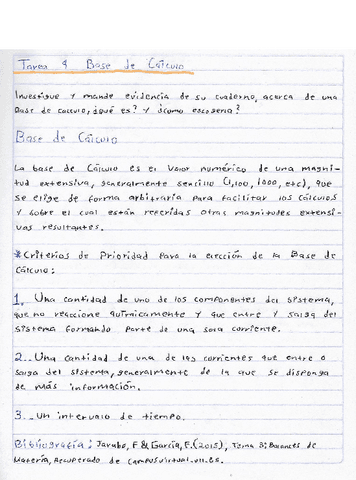 Tarea 4 Base de Cálculo
Investigue y mande evidencia de su cuaderno, acerca de una
Base de calculo, ¿qué es? Y ¿cómo escogerla?
Base de Cálculo
La base de Cálculo es el valor numérico de una magni-
tud extensiva, generalmente sencillo (1,100, 1000, etc), que
se elige de forma arbitraria para facilitar los cálculos
y sobre el cual están referidas otras magnitudes extensi-
vas resultantes.
*Criterios de Prioridad para la elección de la Base de
Cálculo:
1. Una cantidad de uno de los componentes del sistema,
que no reaccione químicamente y que entre y salga del
sistema formando parte de una sola corriente.
2. Una cantidad de una de las corrientes que entre o
salga del sistema, generalmente de la que se disponga
de más información.
3. Un intervalo de tiempo.
Bibliografía: Jarabo, F & García, F. (2015), Tema 3: Balances de
Materia, Recuperado de campusvirtual.ull.es.